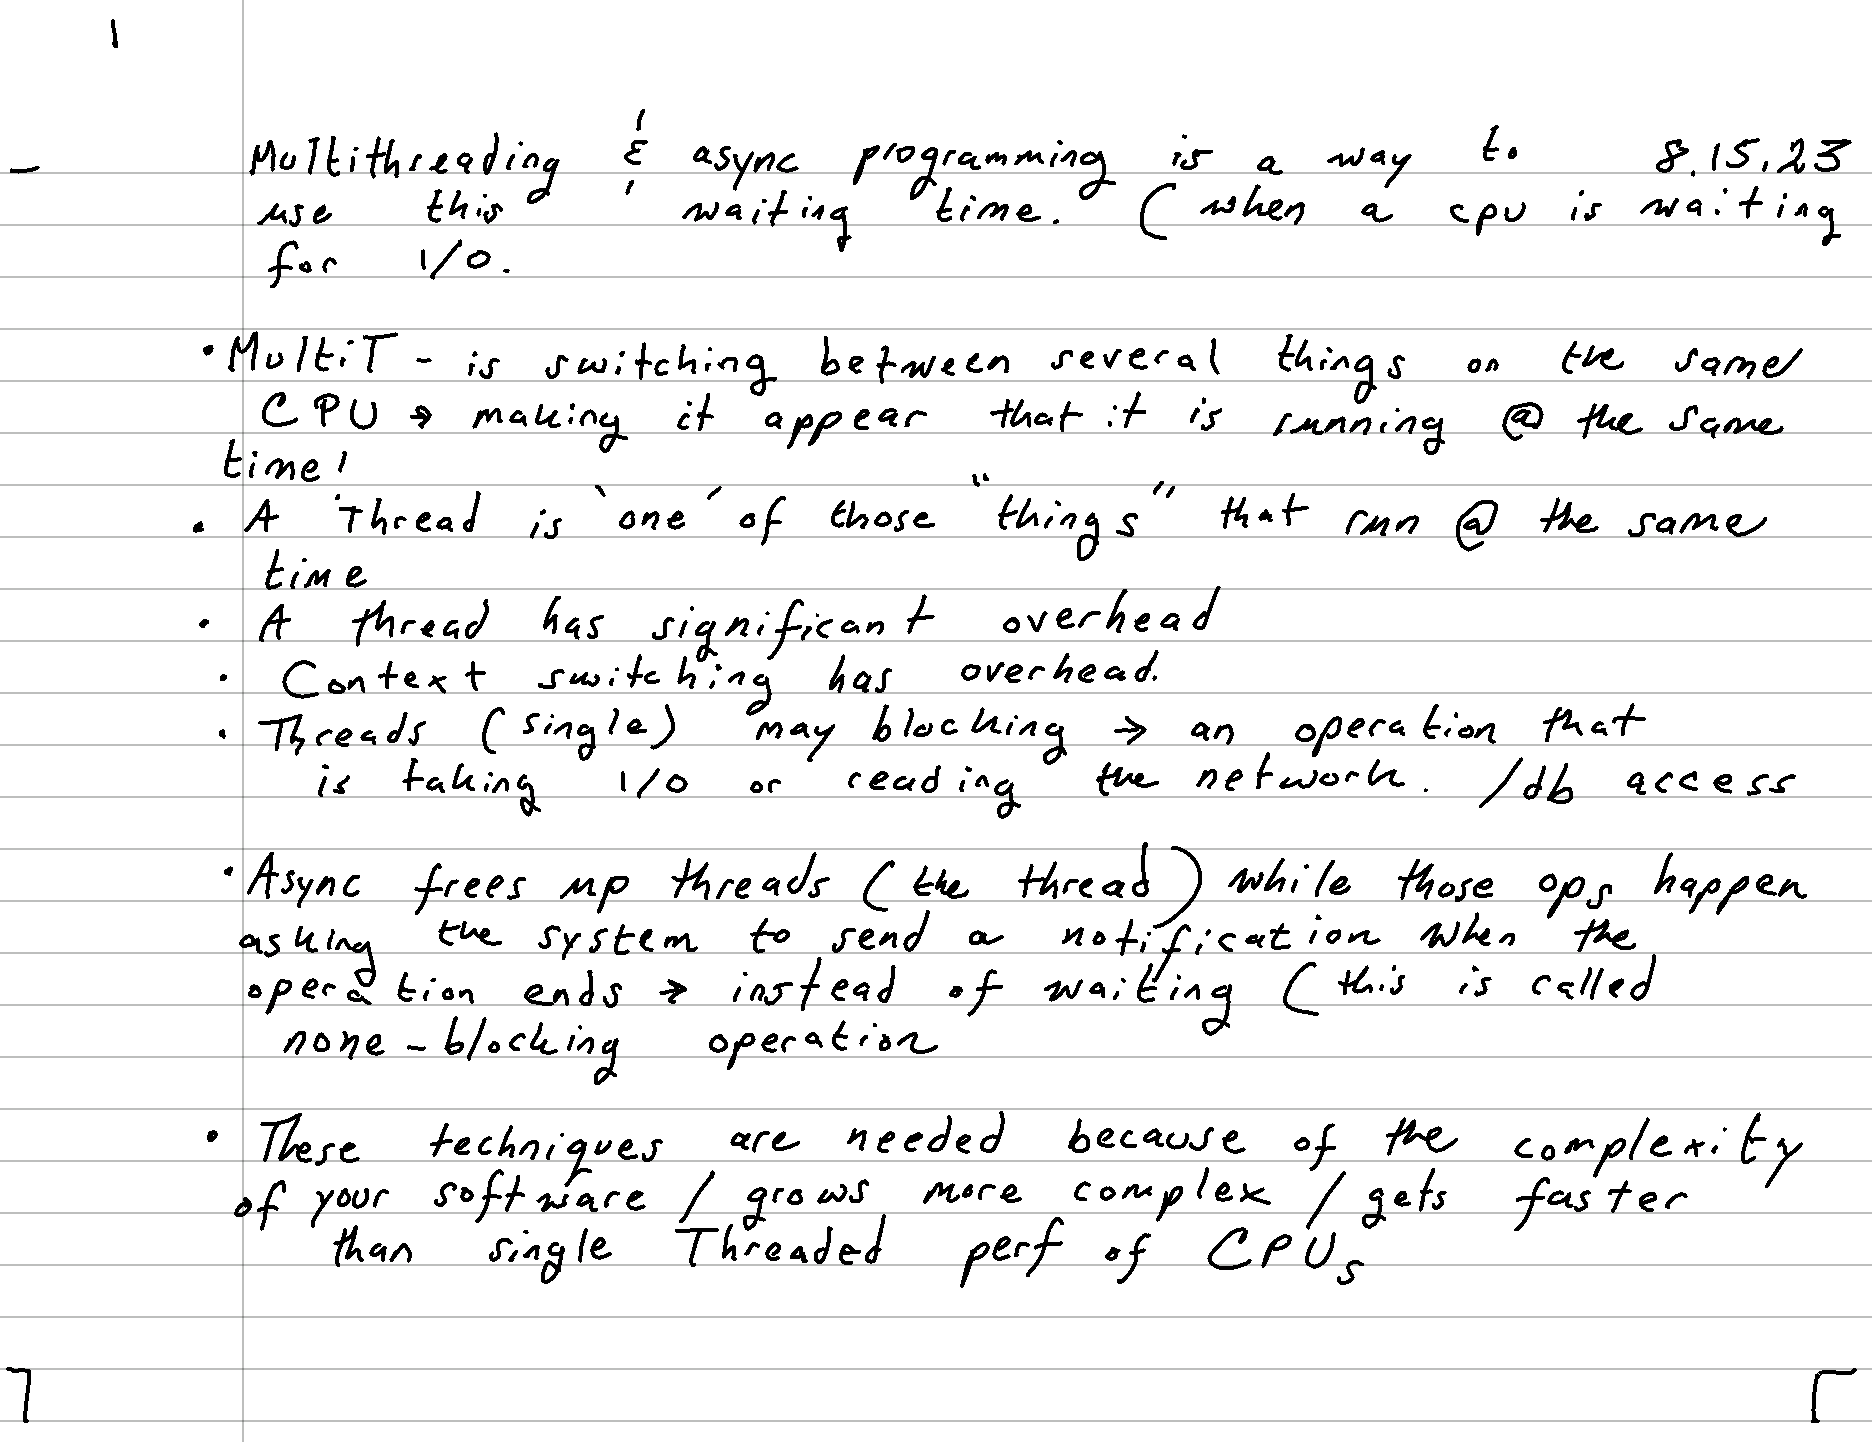 Multithreading & async programming is a way to 8.15.23
use this waiting time. (when a cpu is waiting
for I/O.
• MultiT - is switching between several things on the same
CPU → making it appear that it is running @ the same
time!
• A Thread is `one´ of those "things" that run @ the same
time
• A thread has significant overhead
• Context switching has overhead.
• Threads (single) may blocking → an operation that
is taking I/O or reading the network. /db access
• Async frees up threads (the thread) while those ops happen
asking the system to send a notification when the
operation ends → instead of waiting (this is called
none-blocking operation
• These techniques are needed because of the complexity
of your software / grows more complex / gets faster
than single Threaded perf of CPUs